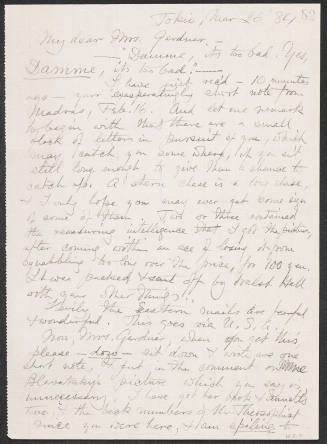 Tokio, Mar 26 '84
My dear Mrs. Gardner,
"Damme", it's too bad. Yes,
Damme, it's too bad!
I have just read — 10 minutes
ago — your exasperatingly short note from
Madras, Feb. 16. And let me remark
to begin with that there are a small
flock of letters in pursuit of you, which
may catch you somewhere, if you sit
still long enough to give them a chance to
catch up. A stern chase is a long chase,
& I only hope you may ever get some sign
of some of them. Two or three contained
the reassuring intelligence that I got the
after coming within an ace of losing it from
squabbling too long over the price, for 100 yen.
It was packed & sent off by Walsh Hall
with your other things.
Truly the Eastern mails are fearful
& wonderful. This goes via U.S.A.
Now, Mrs. Gardner, when you get this
please — do — sit down & write me one
short note, & put in the comment on Mme
Blavatsky's picture which you say is
unnecessary. I have got her book & Sinnett's
two, & the back numbers of the Theosophist
since you were here, & am spoiling to